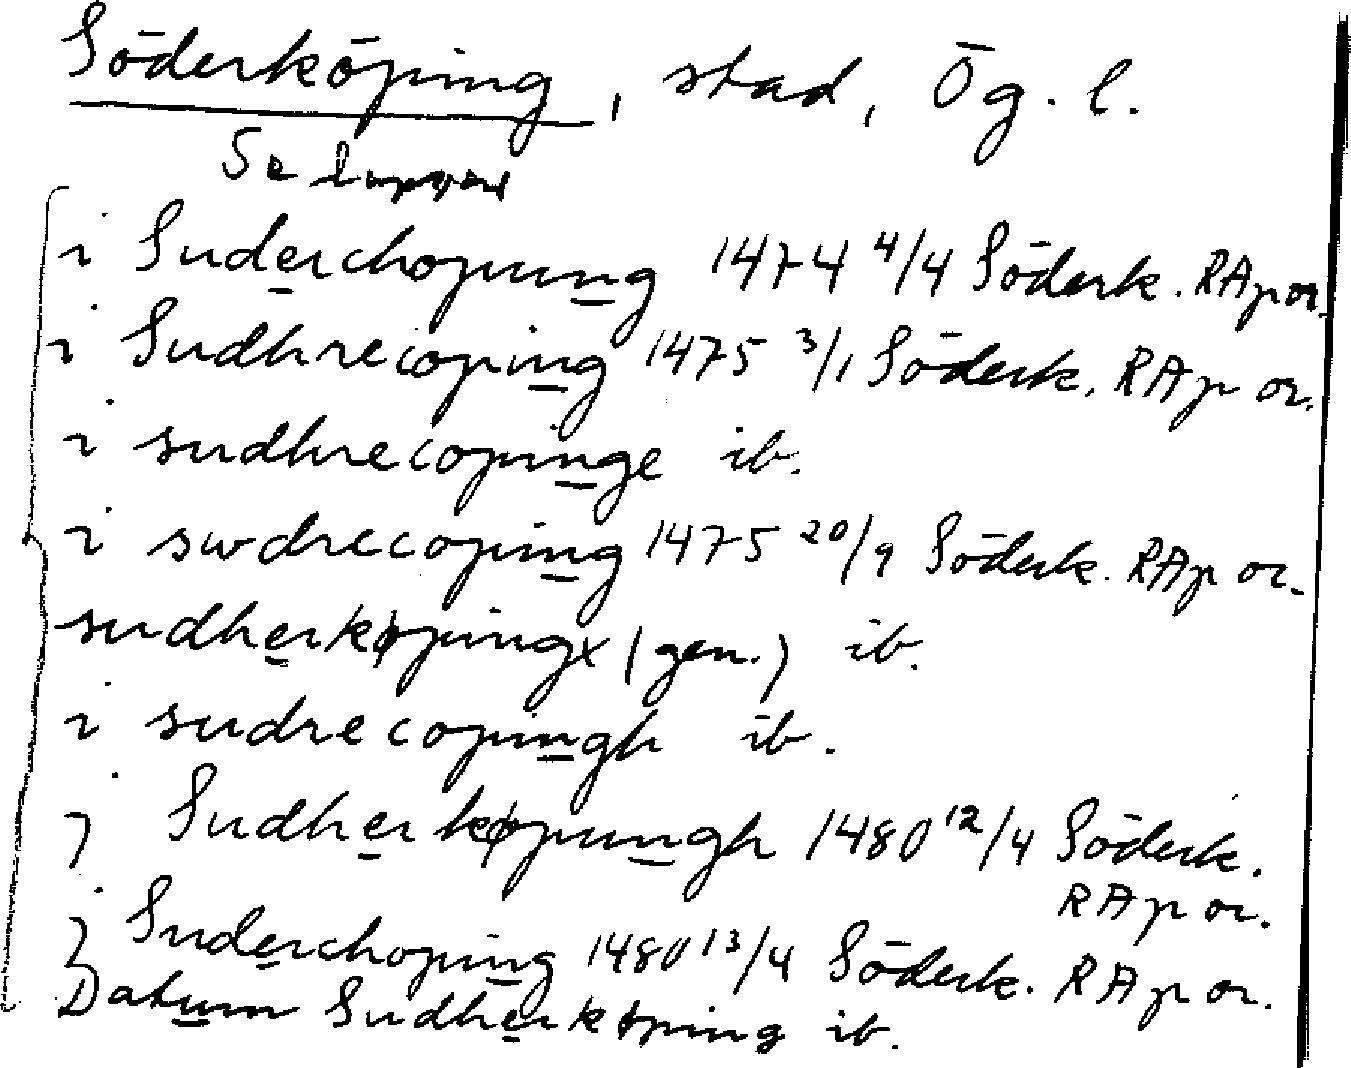 Söderköping, stad, Ög. l.
Se
i Suderchopung 1474 4/4 Söderk. RAp or.
i Sudhrecoping 1475 3/1 Söderk. RAp or.
i sudhrecopinge ib.
i swdrecoping 1475 20/9 Söderk. RAp or.
sudherkøpingx (gen.) ib.
i sudrecopingh ib.
j Sudherkøpungh 1480 12/4 Söderk.
RAp or.
j Suderchoping 1480 13/4 Söderk. RAp or.
Datum Sudherkøping ib.